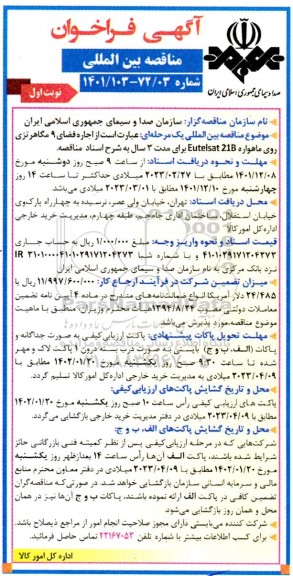 آگهی فراخوان
مناقصه بین المللی
شماره ۷۲/۰۳-۱۴۰۱/۱۰۳
نوبت اول
صدا و سیمای جمهوری اسلامی ایران
نام سازمان مناقصه گزار: سازمان صدا و سیمای جمهوری اسلامی ایران
موضوع مناقصه بین‌المللی یک مرحله‌ای: عبارت است از اجاره فضای ۹ مگاهرتزی
روی ماهواره Eutelsat 21B برای مدت ۳ سال به شرح اسناد مناقصه.
مهلت و نحوه دریافت اسناد: از ساعت ۹ صبح روز دوشنبه مورخ
۱۴۰۱/۱۲/۰۸ مطابق با ۲۰۲۳/۰۲/۲۷ میلادی حداکثر تا ساعت ۱۴ روز
چهارشنبه مورخ ۱۴۰۱/۱۲/۱۰ مطابق با ۲۰۲۳/۰۳/۰۱ میلادی می‌باشد.
محل دریافت اسناد: تهران، خیابان ولی عصر، نرسیده به چهارراه پارک‌وی
خیابان استقلال، ساختمان اداری جام‌جم، طبقه چهارم، مدیریت خرید خارجی
اداره کل امور کالا
قیمت اسناد و نحوه واریز وجه: مبلغ ۱/۰۰۰/۰۰۰ ریال به حساب جاری
۴۱۰۱۰۲۹۱۷۱۲۰۴۲۷۳ و با شماره شبا
نزد بانک مرکزی به نام سازمان صدا و سیمای جمهوری اسلامی ایران
میزان تضمین شرکت در فرآیند ارجاع کار: ۱۱/۹۹۷/۶۰۰/۰۰۰ ریال یا
۲۴/۴۸۵ دلار آمریکا انواع ضمانتنامه‌های مندرج در ماده ۴ آیین نامه تضمین
معاملات دولتی مصوب ۱۳۹۴/۸/۲۴ هیأت محترم وزیران منطبق با ماهیت
موضوع مناقصه مورد پذیرش می‌باشد.
مهلت تحویل پاکات پیشنهادی: پاکت ارزیابی کیفی به صورت جداگانه و
پاکات (الف، ب و ج)
شده تا ساعت ۹:۳۰ صبح روز یکشنبه مورخ ۱۴۰۲/۰۱/۲۰ مطابق با
۲۰۲۳/۰۴/۰۹ میلادی به مدیریت خرید خارجی اداره کل امور کالا تسلیم گردد.
محل و تاریخ گشایش پاکت‌های ارزیابی کیفی:
پاکت های ارزیابی کیفی رأس ساعت ۱۰ صبح روز یکشنبه مورخ ۱۴۰۲/۰۱/۲۰
مطابق با ۲۰۲۳/۰۴/۰۹ میلادی در دفتر مدیریت خرید خارجی بازگشایی می‌گردد.
محل و تاریخ گشایش پاکت‌های الف، ب و ج:
شرکت‌هایی که در مرحله ارزیابی کیفی پس از نظر کمیته فنی بازرگانی حائز
شرایط شده باشند، پاکت الف آن‌ها رأس ساعت ۱۴ بعدازظهر روز یکشنبه
مورخ ۱۴۰۲/۰۱/۲۰ مطابق با ۲۰۲۳/۰۴/۰۹ میلادی در دفتر معاون محترم منابع
مالی و سرمایه انسانی سازمان بازگشایی خواهد شد. در صورتی که مناقصه‌گران
تضمین کافی در پاکت الف ارائه نموده باشند، پاکات ب و ج آن‌ها نیز در همان
محل و همان روز بازگشایی می‌شود.
شرکت کننده می‌بایستی دارای مجوز صلاحیت انجام امور از مراجع ذیصلاح باشد.
برای کسب اطلاعات بیشتر با شماره تلفن ۲۲۱۶۷۰۵۳ تماس حاصل فرمائید.
اداره کل امور کالا